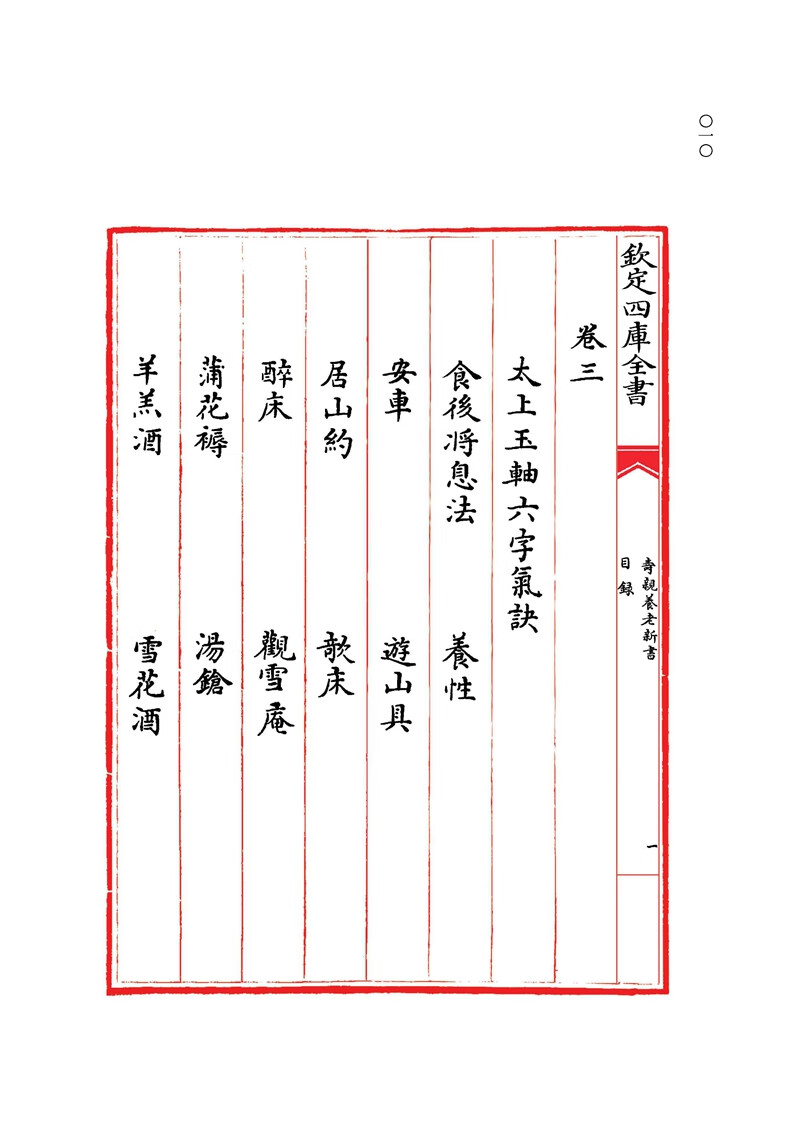 〇一〇
欽定四庫全書
壽親養老新書
目録
一
卷三
太上玉軸六字氣訣
食後将息法 養性
安車 遊山具
居山約 欹床
醉床 觀雪庵
蒲花褥 湯鎗
羊羔酒 雪花酒